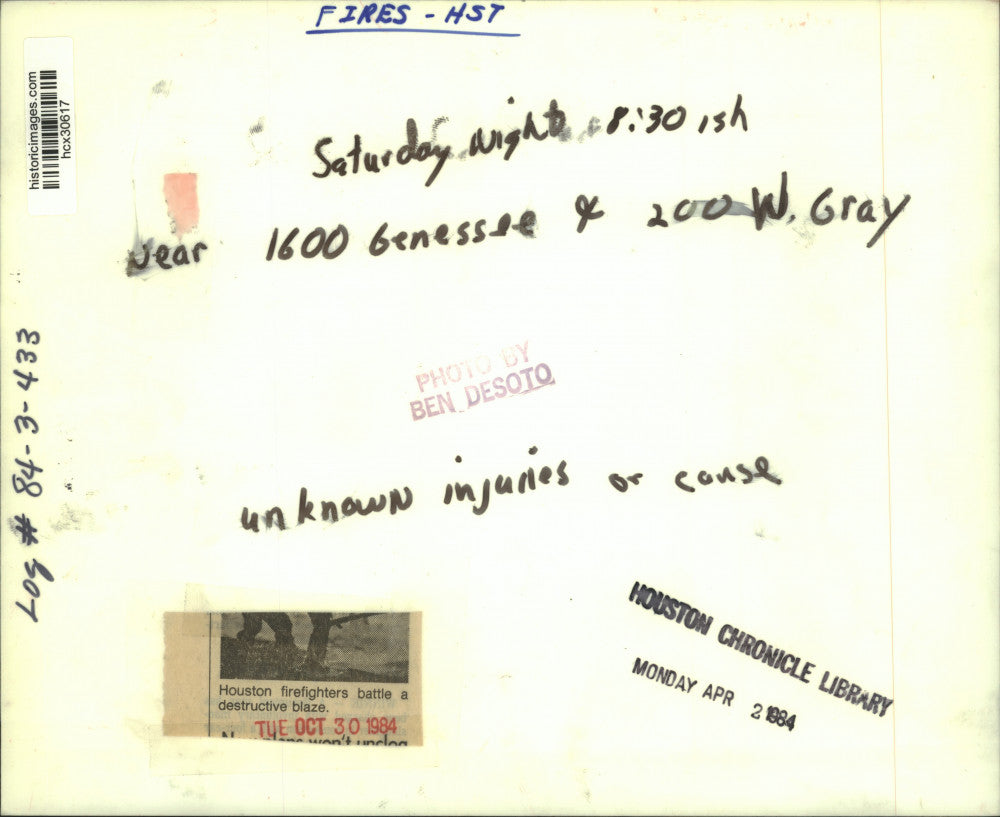 FIRES - HST
historicimages.com
hcx30617
Saturday Night 8:30 ish
Near 1600 Genessee & 200 W. Gray
Log # 84-3-433
PHOTO BY
BEN DESOTO
unknown injuries or cause
HOUSTON CHRONICLE LIBRARY
MONDAY APR 2 1984
Houston firefighters battle a
destructive blaze.
TUE OCT 30 1984
won't unclog